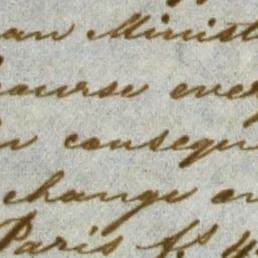 an Minist
ourse ever
n consequ
change on
Paris fs 4